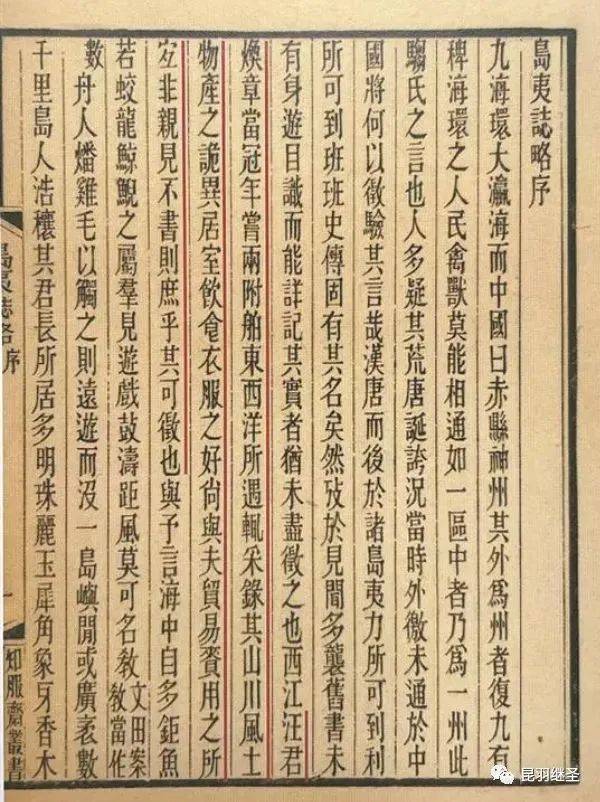 島夷誌略序
九海環大瀛海而中國曰赤縣神州其外爲州者復九有
稗海環之人民禽獸莫能相通如一區中者乃爲一州此
騶氏之言也人多疑其荒唐誕誇況當時外徼未通於中
國將何以徵驗其言哉漢唐而後於諸島夷力所可到利
所可到班班史傳固有其名矣然攷於見聞多襲舊書未
有身遊目識而能詳記其實者猶未盡徵之也西江汪君
煥章當冠年嘗兩附舶東西洋所過輒采錄其山川風土
物產之詭異居室飲食衣服之好尚與夫貿易賚用之所
宜非親見不書則庶乎其可徵也與予言海中自多鉅魚
若蛟龍鯨鯢之屬羣見遊戲鼓濤距風莫可名教文田案教當作
數舟人燔雞毛以觸之則遠遊而沒一島嶼閒或廣袤數
千里島人浩穰其君長所居多明珠麗玉犀角象牙香木
島夷誌略 序
一
知服齋叢書
昆羽继圣